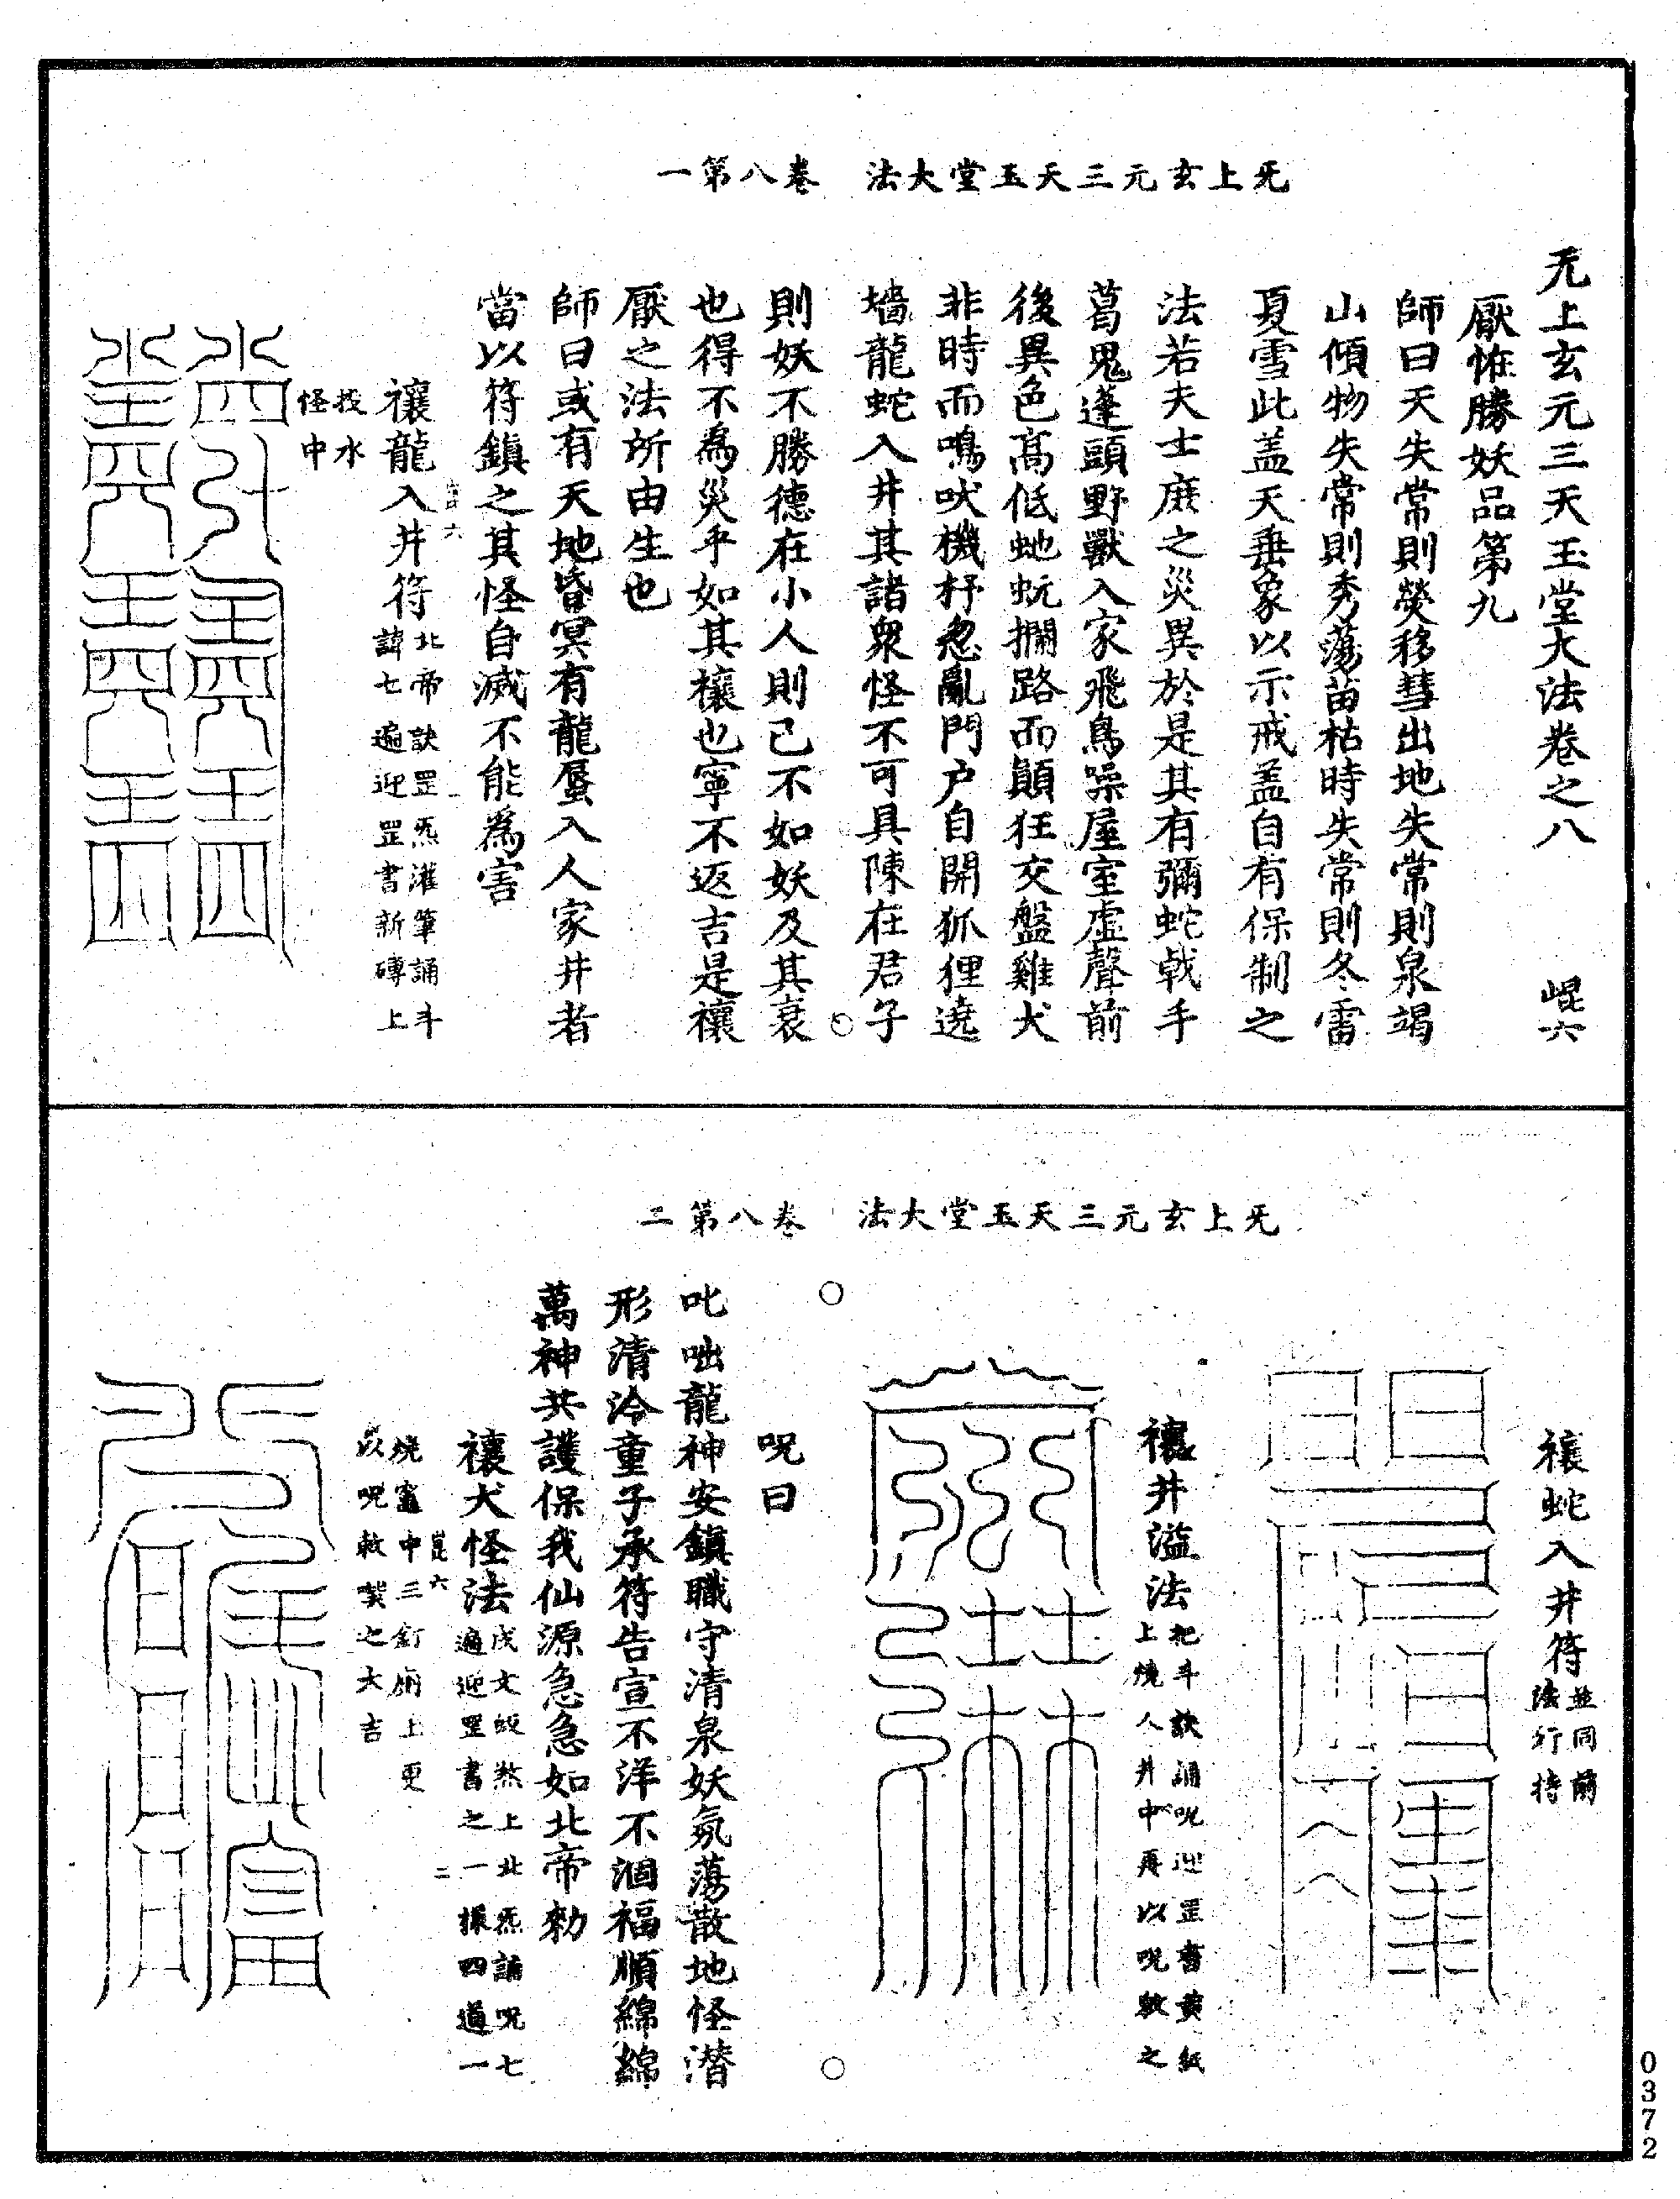 无上玄元三天玉堂大法　卷八第一
无上玄元三天玉堂大法卷之八　崐六
厭恠勝妖品第九
師曰天失常則熒移彗出地失常則泉竭
山傾物失常則秀蕩苗枯時失常則冬雷
夏雪此盖天垂象以示戒盖自有保制之
法若夫士庶之災異於是其有彌蛇戟手
葛鬼逢頭野獸入家飛鳥噪屋室虛聲前
後異色高低虵蚖攔路而顛狂交盤雞犬
非時而鳴吠機杼忽亂門户自開狐狸遶
墻龍蛇入井其諸衆怪不可具陳在君子
則妖不勝德在小人則已不如妖及其衰
也得不為災乎如其禳也寧不返吉是禳
厭之法所由生也
師曰或有天地昏冥有龍蜃入人家井者
當以符鎮之其怪自滅不能為害
禳龍入井符北帝訣罡炁灌筆誦斗
諱七遍迎罡書新磚上
投水
怪中
无上玄元三天玉堂大法　卷八第二
禳蛇入井符並同前
法行持
禳井溢法把斗訣誦呪迎罡書黄紙
上燒人井中再以呪敕之
呪曰
叱咄龍神安鎮職守清泉妖氛蕩散地怪潜
形清泠童子承符告宣不洋不涸福順綿綿
萬神共護保我仙源急急如北帝勑
禳犬怪法戌文煞上北炁誦呪七
遍迎罡書之一樣四道一
燒竈中三釘廟上更
以呪敕之大吉
崐六
二
0372